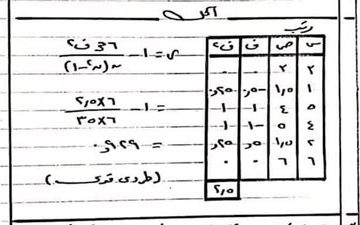 الحل
رتب
س ص ف ف٢
٣ ٣ ٠ ٠
١ ١,٥ -٠,٥ ٠,٢٥
٥ ٤ ١ ١
٤ ٥ -١ ١
٢ ١,٥ ٠,٥ ٠,٢٥
٦ ٦ ٠ ٠
٢,٥
ر = ١ - ٦ مجـ ف٢ / ن(ن٢ - ١)
= ١ - ٦×٢,٥ / ٦×٣٥
= ٠,٩٢٩
(طردي قوي)